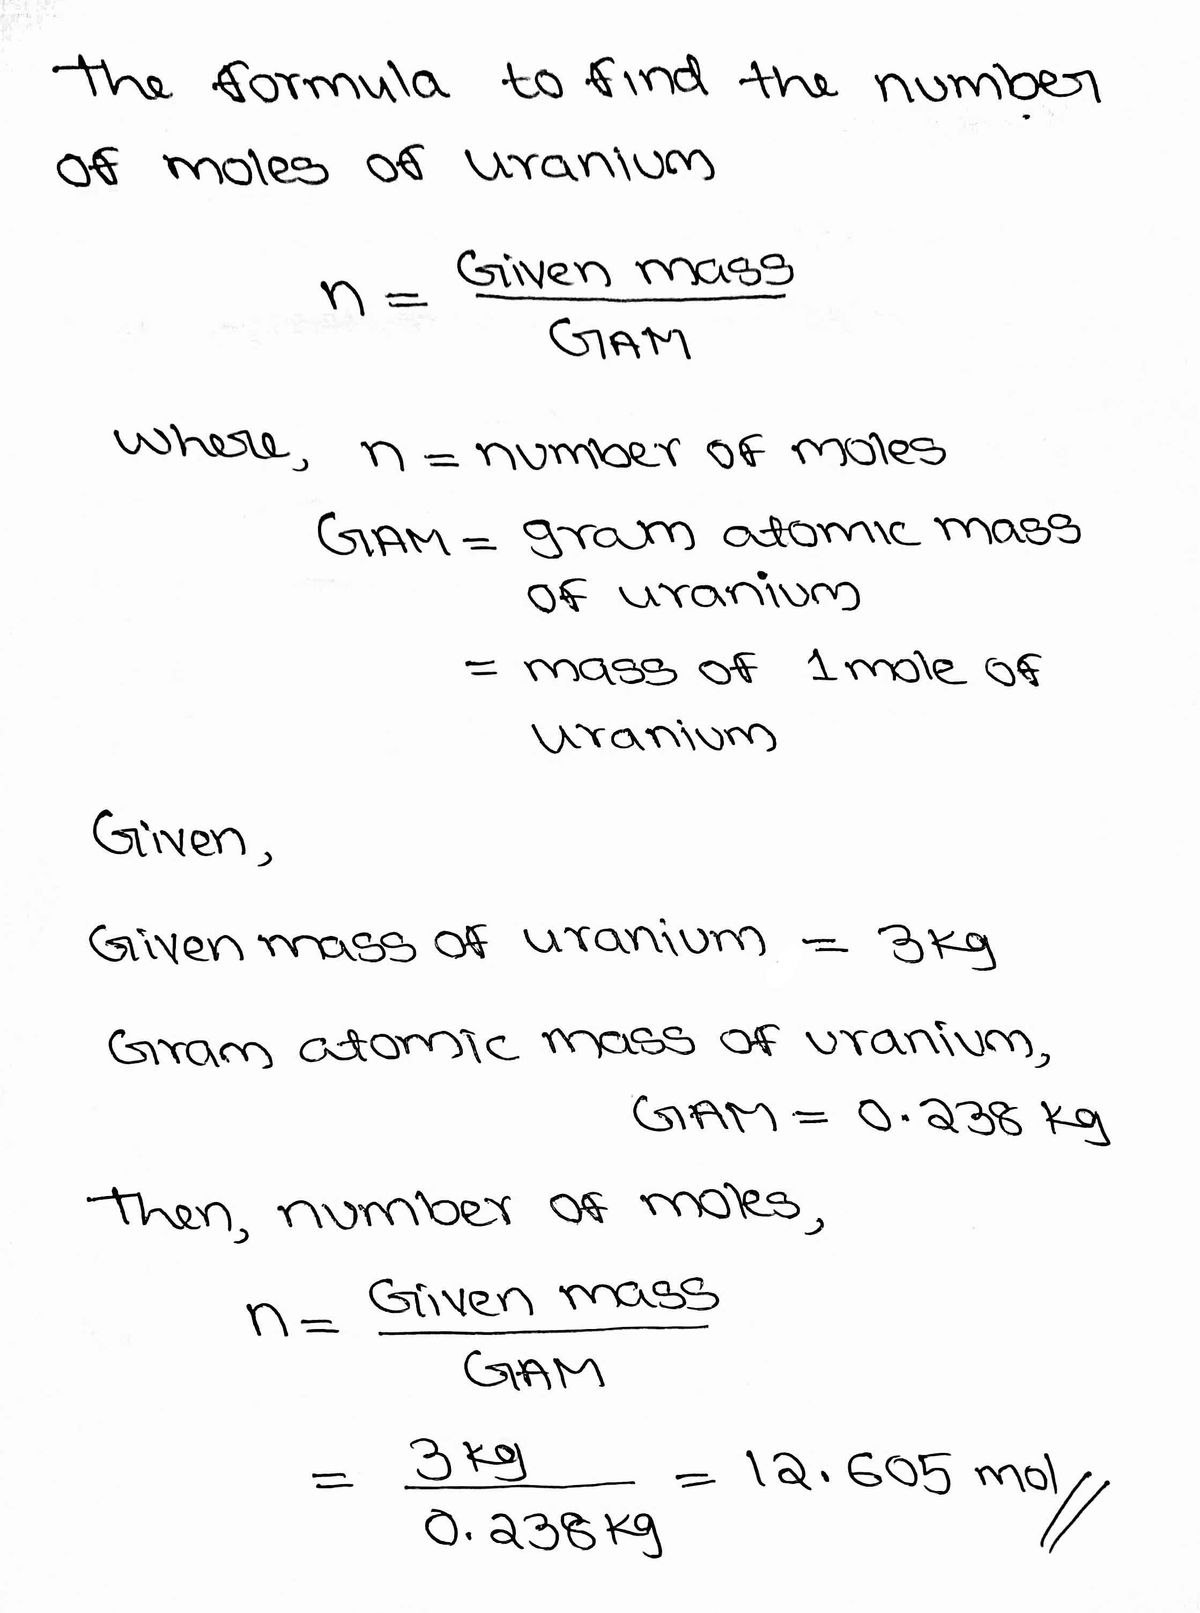 The formula to find the number
of moles of uranium
n = Given mass / GAM
where, n = number of moles
GAM = gram atomic mass
of uranium
= mass of 1 mole of
uranium
Given,
Given mass of uranium = 3 kg
Gram atomic mass of uranium,
GAM = 0.238 kg
Then, number of moles,
n = Given mass / GAM
= 3 kg / 0.238 kg = 12.605 mol //